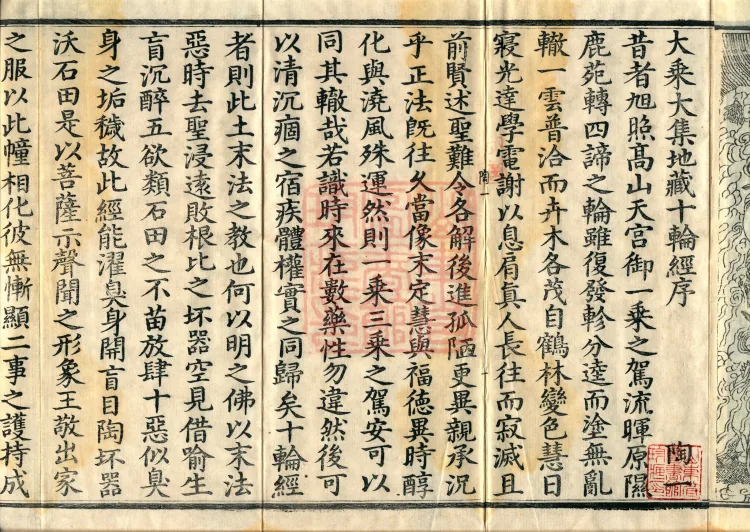 大乘大集地藏十輪經序
陶一
昔者旭照髙山天宮御一乘之駕流暉原隰
鹿苑轉四諦之輪雖復發軫分逵而塗無亂
轍一雲普洽而卉木各茂自鶴林變色慧日
寢光達學電謝以息肩真人長往而寂滅且
陶一
前賢述聖難令各解後進孤陋更異親承況
乎正法旣往久當像末定慧與福德異時醇
化與澆風殊運然則一乘三乘之駕安可以
同其轍哉若識時來在數藥性勿違然後可
以清沉痼之宿疾體權實之同歸矣十輪經
者則此土末法之教也何以明之佛以末法
惡時去聖浸遠敗根比之坏器空見借喻生
盲沉醉五欲類石田之不苗放肆十惡似臭
身之垢穢故此經能濯臭身開盲目陶坏器
沃石田是以菩薩示聲聞之形象王敬出家
之服以此幢相化彼無慚顯二事之護持成